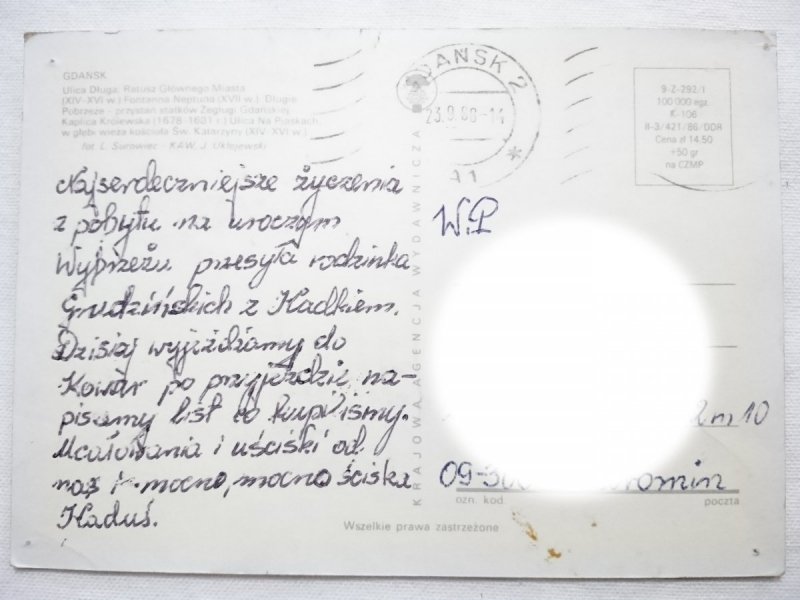 GDAŃSK
Ulica Długa. Ratusz Głównego Miasta
(XIV-XVI w.) Fontanna Neptuna (XVII w.). Długie
Pobrzeże - przystań statków Żeglugi Gdańskiej
Kaplica Królewska (1678-1681 r.) Ulica Na Piaskach,
w głębi wieża kościoła Św. Katarzyny (XIV-XVI w.)
fot. L. Surowiec - KAW, J. Uklejewski
Najserdeczniejsze życzenia
z pobytu na uroczym
Wybrzeżu przesyła rodzinka
Grudzińskich z Hadkiem.
Dzisiaj wyjeżdżamy do
Kowar po przyjeździe na-
piszmy list co kupiliśmy.
Ucałowania i uściski od
nas i mocno, mocno ściska
Haduś.
KRAJOWA AGENCJA WYDAWNICZA
GDAŃSK 2
23.9.88-14
A1
9-Z-292/1
100 000 egz.
K-106
II-3/421/86/DDR
Cena zł 14,50
+50 gr
na CZMP
W.P
m 10
09-
romin
ozn. kod. poczta
Wszelkie prawa zastrzeżone